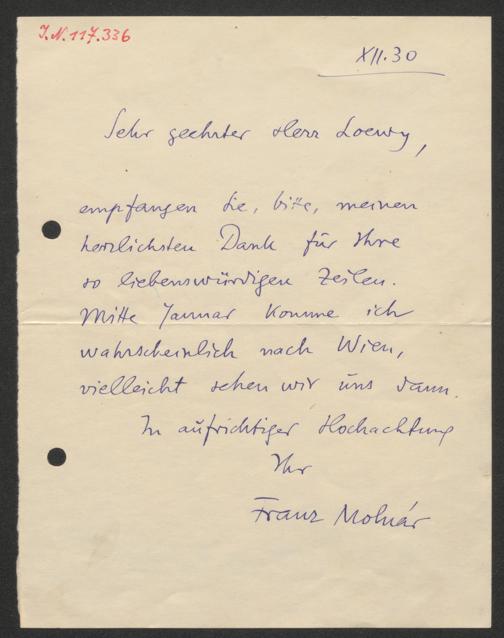 I.N. 117.336
XII.30
Sehr geehrter Herr Loewy,
empfangen Sie, bitte, meinen
herzlichsten Dank für Ihre
so liebenswürdigen Zeilen.
Mitte Januar komme ich
wahrscheinlich nach Wien,
vielleicht sehen wir uns dann.
In aufrichtiger Hochachtung
Ihr
Franz Molnár